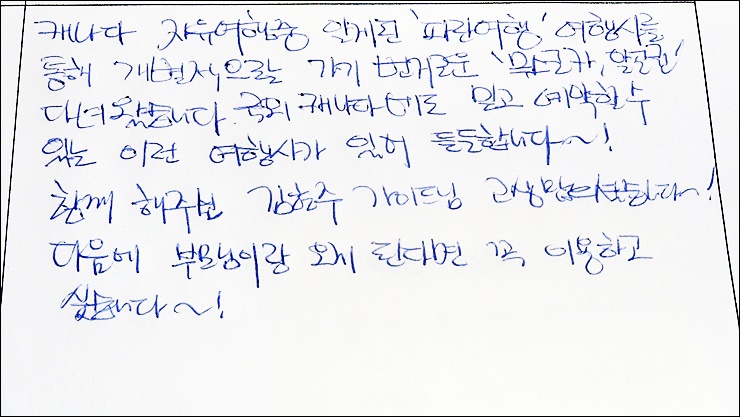 캐나다 자유여행중 알게된 '파란여행' 여행사를
통해 개별적으로 가기 번거로운 '무스코카, 알곤퀸'
다녀왔습니다. 국외 캐나다에도 믿고 예약할 수
있는 이런 여행사가 있어 든든합니다~!
함께 해주신 김현주 가이드님 고생많으셨습니다~!
다음에 부모님이랑 오게 된다면 꼭 이용하고
싶습니다~!